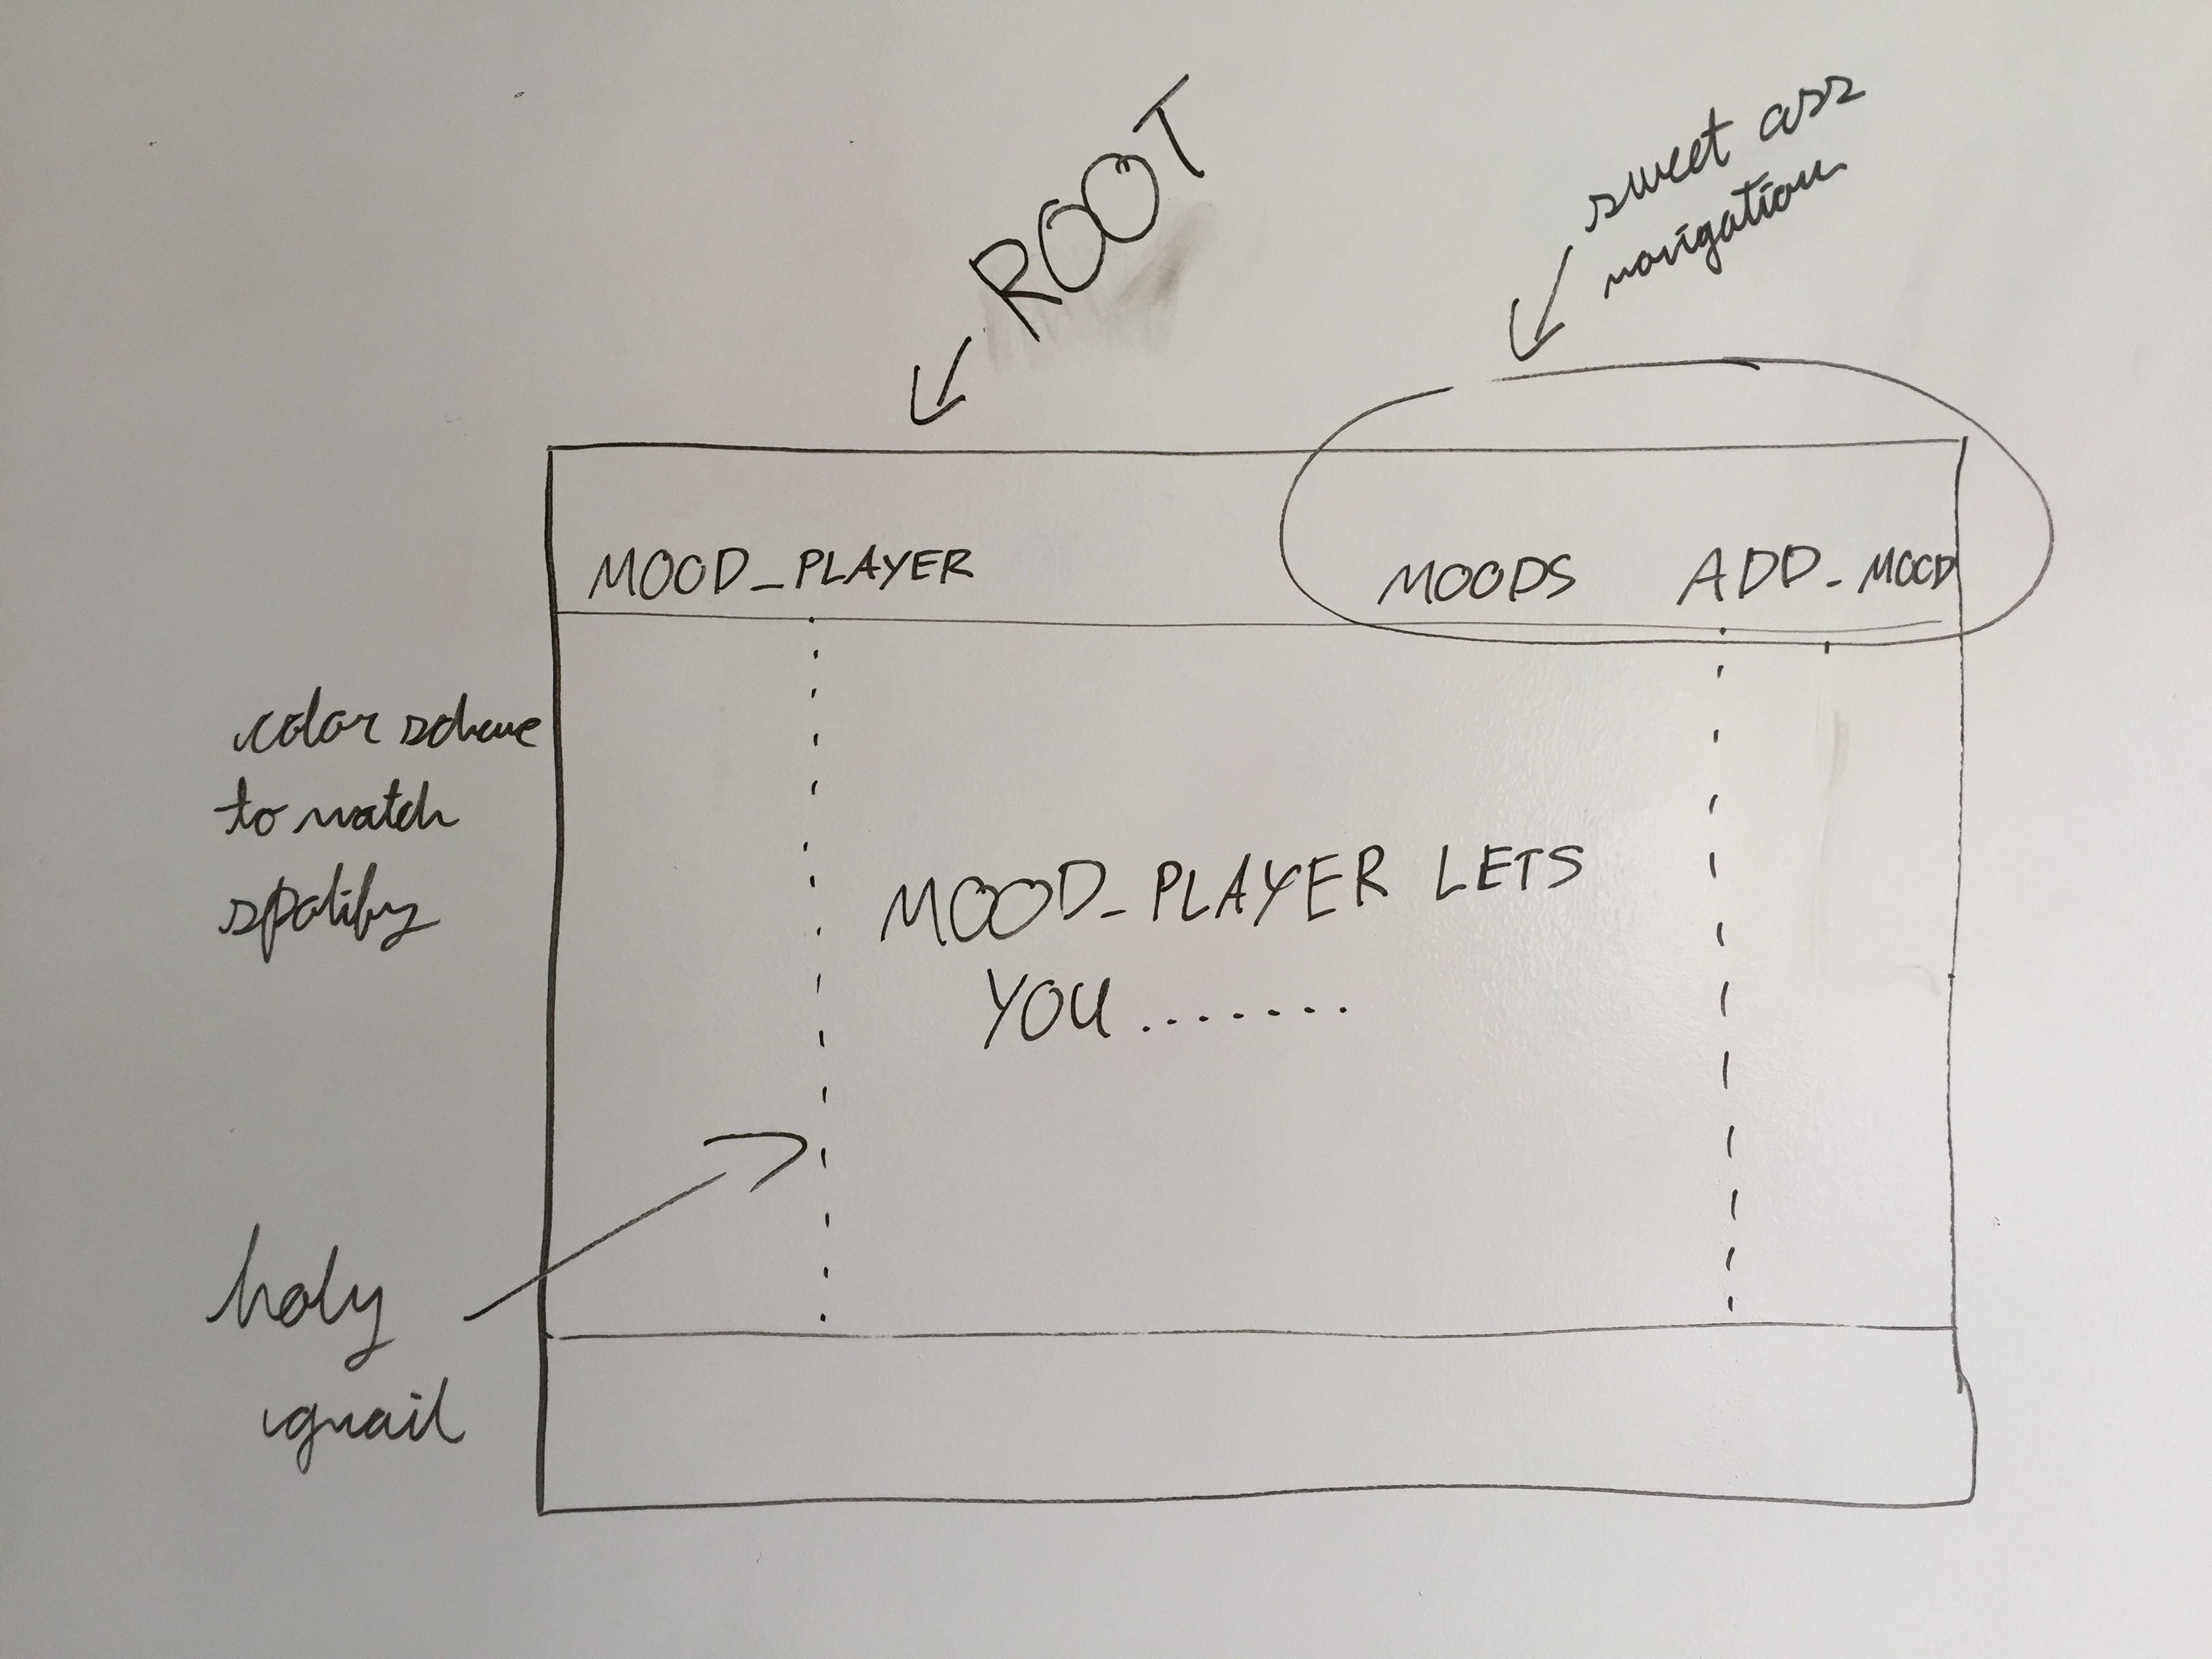 ROOT
sweet ass
navigation
MOOD_PLAYER MOODS ADD_MOOD
color scheme
to match
spotify
MOOD_PLAYER LETS
YOU .......
holy
grail